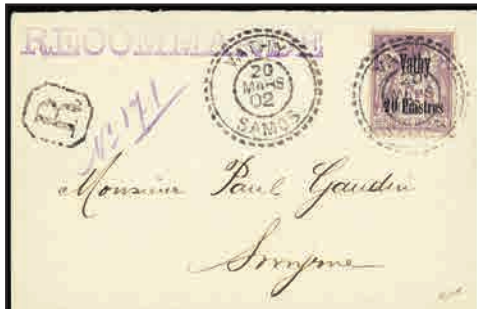 RECOMMANDÉ
VATHY
20
MARS
02
SAMOS
Vathy
20 Piastres
R
No 171
Monsieur Paul Gaudin
Smyrne